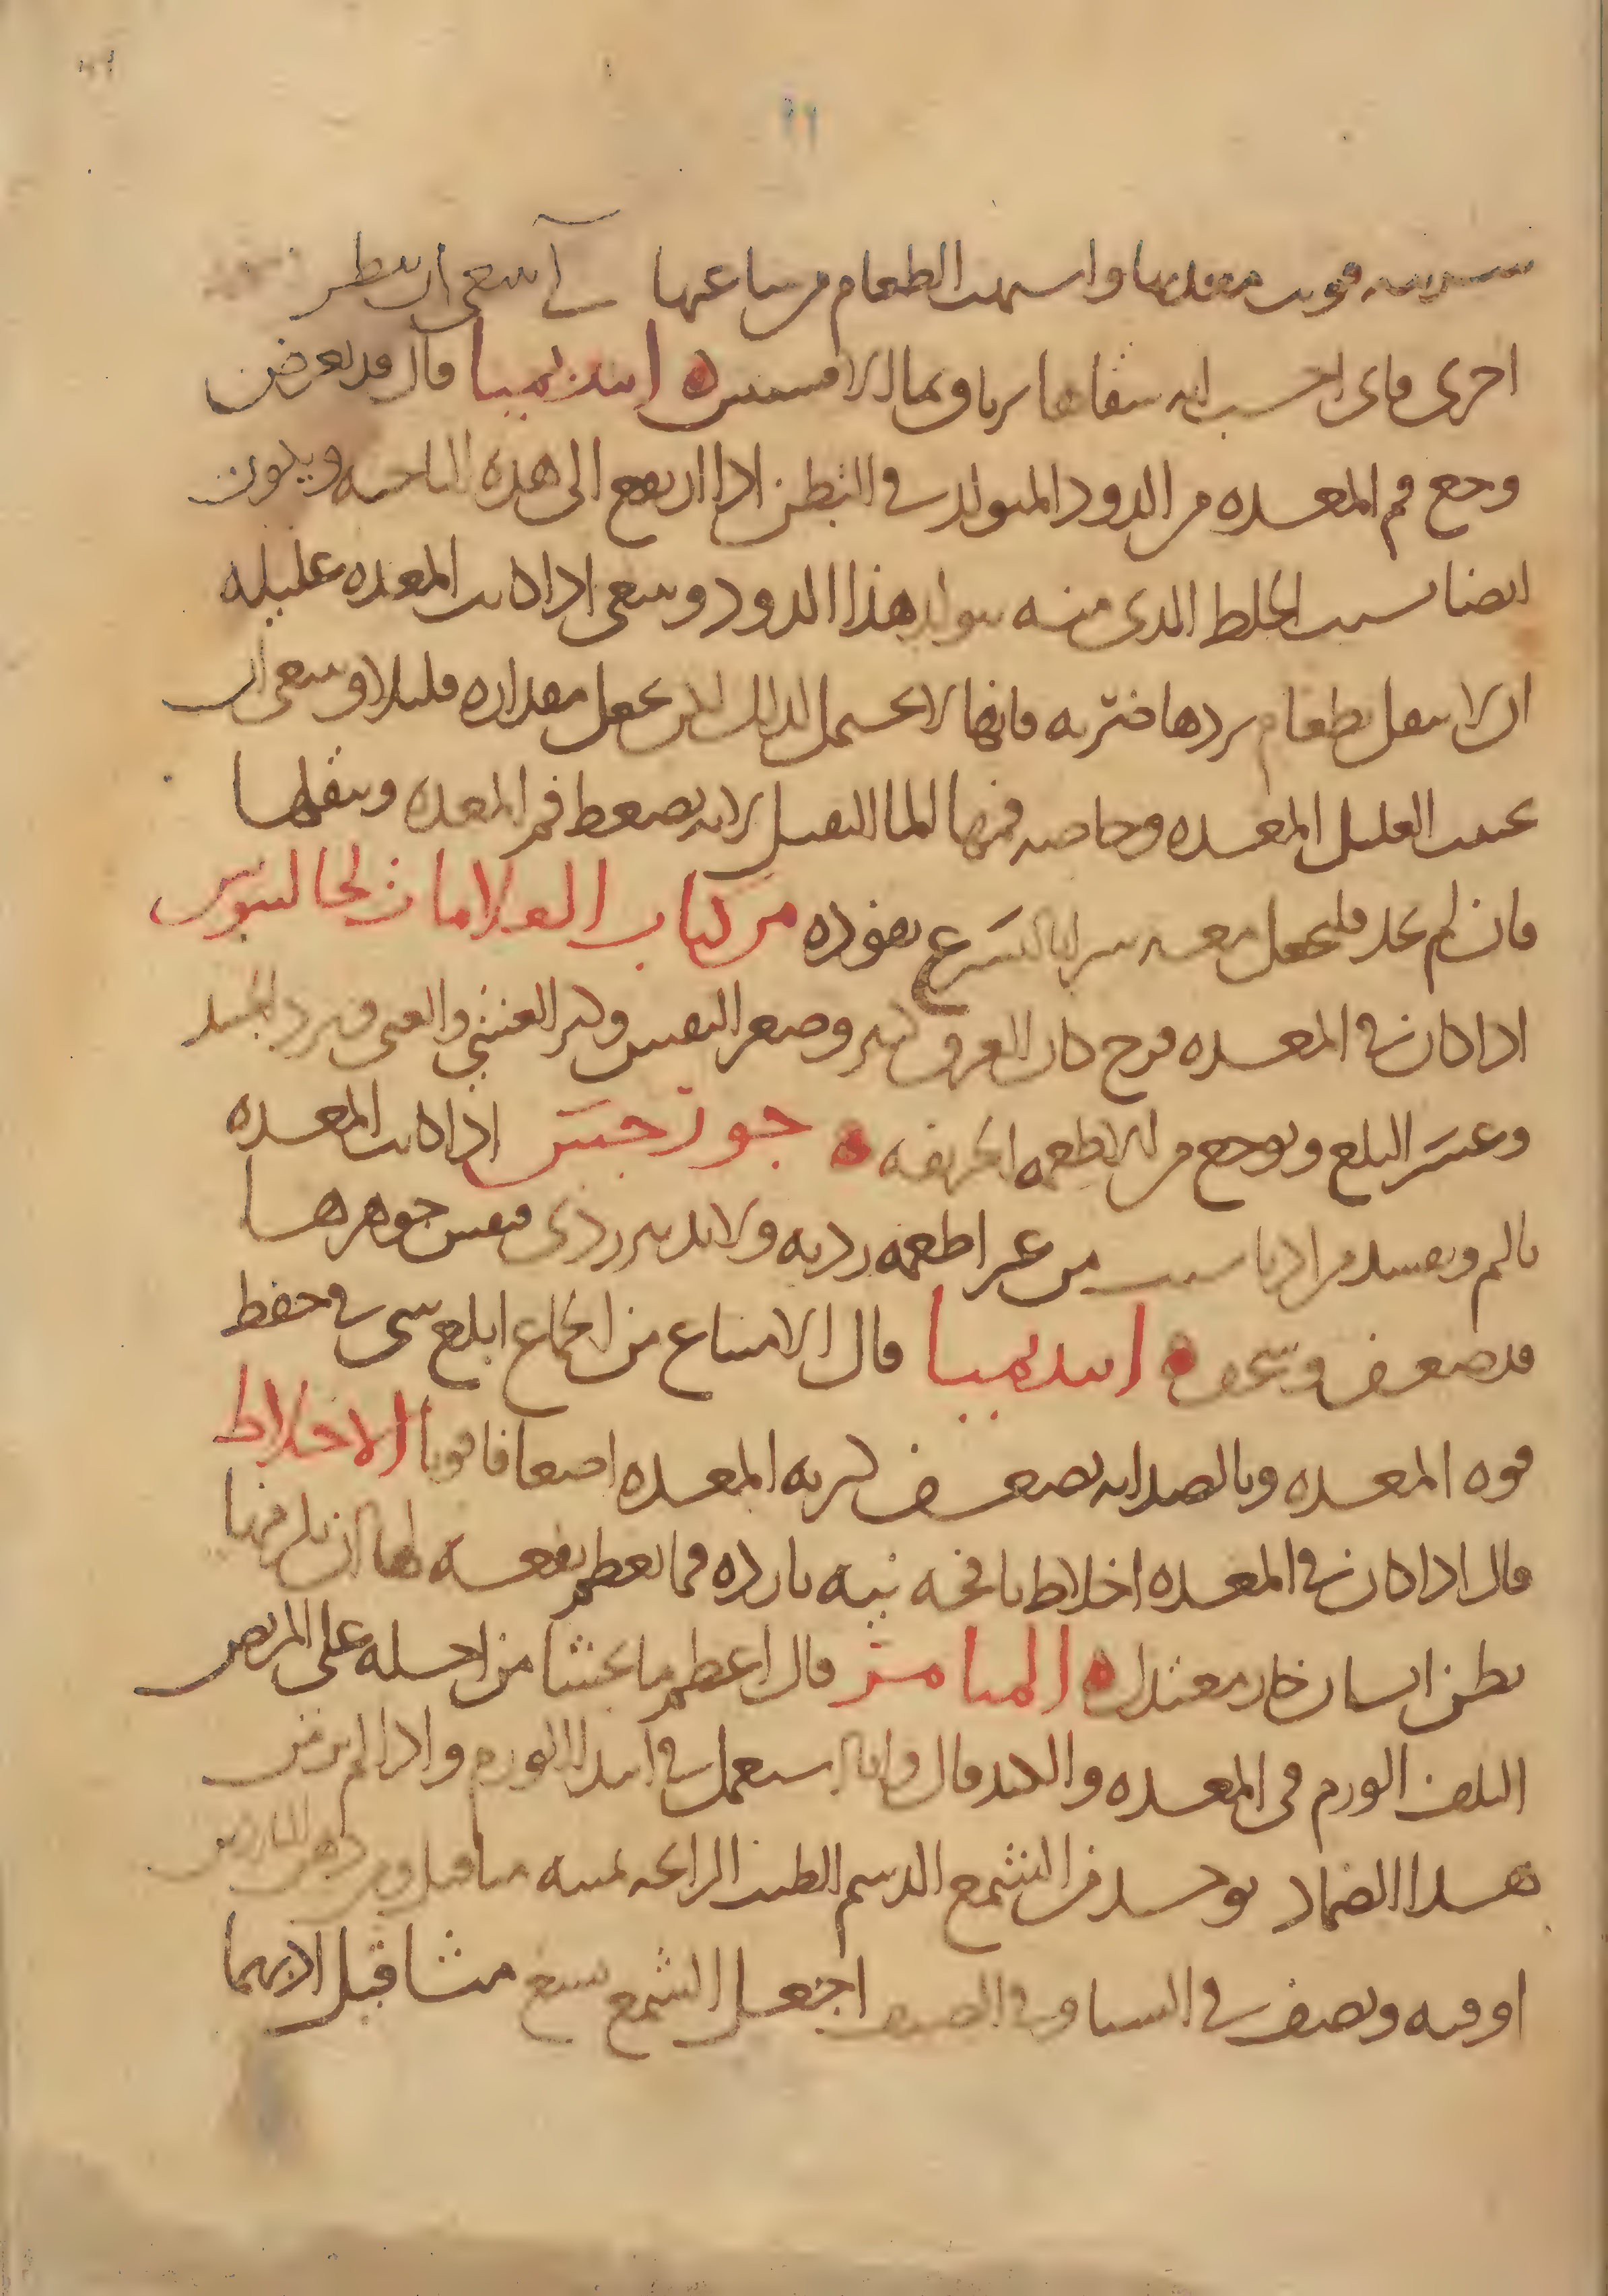 ١١
شربته قويت معدتها واشتهت الطعام من ساعتها لى ينبغي ان ينظر
اخرى فاى احسب انه سقاها ربا وبما الافسنتين ابيذيميا قال قد يعرض
وجع فم المعده من الدود المتولد في البطن اذا ارتفع الى هذه الناحيه ويكون
ايضا بسبب الخلط الذى منه يتولد هذا الدود وينبغى اذا كانت المعده عليله
ان لا يثقل بطعام بردها ضربه فانها لا تحتمل لذلك لكن يجعل مقداره قليلا وينبغى ان
يجتنب العليل المعده وخاصه فمها الما الثقيل لانه يضغط فم المعده ويثقلها
فان لم يجد فليجعل معه شرابا ليسرع نفوذه من كتاب العلامات لجالينوس
اذا كان في المعده قرح كان العرق كثير وصغر النفس وكثر الغثي والغشى وبرد الجسد
وعسر البلع وتوجع من الاطعمه الحريفه جورجس اذا كانت المعده
تالم وتفسد مرارا بسبب من غير اطعمه رديه ولا تدبير ردى فنفس جوهرها
قد ضعف وسخف ابيذيميا قال الامتناع من الجماع ابلغ شى في حفظ
قوه المعده وبالضد انه يضعف كثرته المعده اضعافا قويا الاخلاط
قال اذا كان في المعده اخلاط نافخه نيه بارده فما يعظم نفعه لها ان يلزمها
بطن انسان حار معتدل الميامر قال اعظم ما يجتنا من اجله على المريض
التلف الورم في المعده والكبد قال وانه يستعمل في ابتدا الورم واذا لم يزمن
هذا الضماد يوخذ من الشمع الدسم الطيب الرائحه ثمنيه مثاقيل ومن دهن الناردين
اوقيه ونصف في الشتا وفي الصيف اجعل الشمع سبع مثاقيل لانهما